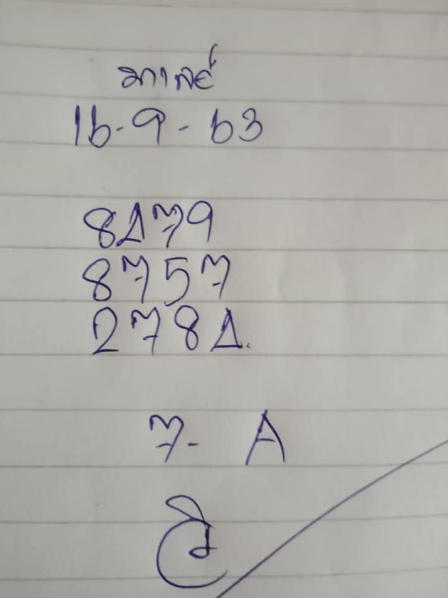 มาเลย์
16-9-63
8479
8757
2784.
7- A